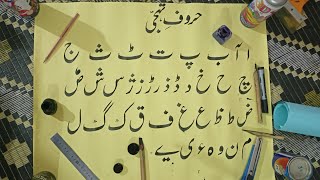 حروفِ تہجی
ا آ ب پ ت ٹ ث ج
چ ح خ د ڈ ذ ر ڑ ز ژ س ش ص
ض ط ظ ع غ ف ق ک گ ل
م ن و ہ ء ی ے